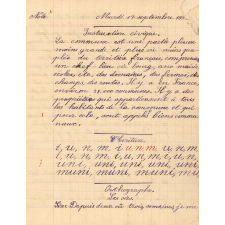 Mardi 17 septembre
Instruction civique.
La commune est une partie plus ou
moins grande et plus ou moins peu-
plée du territoire français comprenant
un chef-lieu ou bourg, des
des hameaux, des fermes, des
champs, des routes. Il y a en France
environ communes. Il y a des
propriétés qui appartiennent à tous
les habitants de la commune et qui
pour cela, sont appelés biens commu-
naux.
Écriture
i, u, n, m, i u n m
uni, uni, uni, uni, uni
muni muni muni muni
Orthographe
Les
Depuis deux ou trois semaines, je me